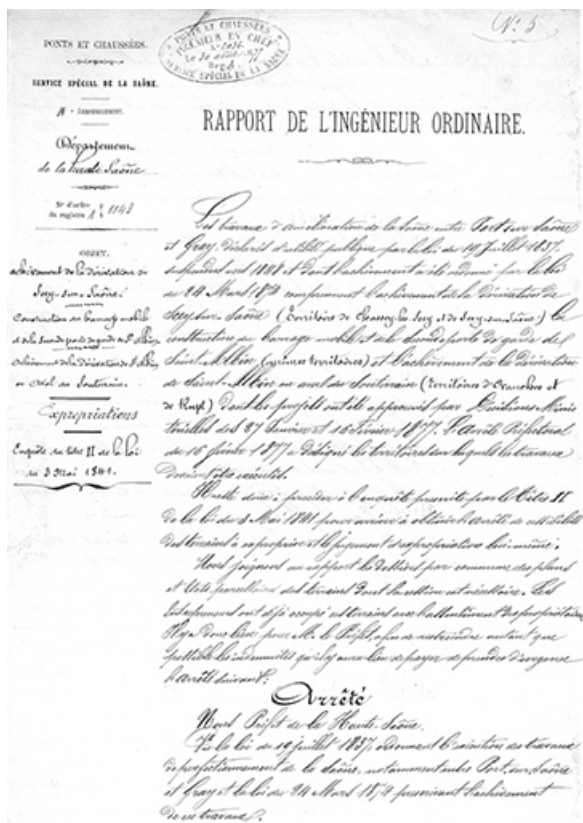 N° 5
PONTS ET CHAUSSÉES
INGÉNIEUR EN CHEF
SERVICE SPÉCIAL DE LA SAÔNE
PONTS ET CHAUSSÉES.
SERVICE SPÉCIAL DE LA SAÔNE.
ARRONDISSEMENT.
Département
de la Haute Saône
N° d'ordre
du registre A 1143
OBJET.
achèvement de la dérivation de
Scey-sur-Saône.
Construction du barrage mobile
et de la seconde porte de garde de St Albin
achèvement de la dérivation de St Albin
en aval du Souterrain.
Expropriations
Enquête du titre II de la loi
du 3 Mai 1841.
RAPPORT DE L'INGÉNIEUR ORDINAIRE.
Les travaux d'amélioration de la Saône entre Port-sur-Saône
et Gray, déclarés d'utilité publique par la loi du 19 Juillet 1837,
suspendus vers et dont l'achèvement a été ordonné par la loi
du 24 Mars 1874 comprennent l'achèvement de la dérivation de
Scey-sur-Saône (Territoire de Chassey-les-Scey et de Scey-sur-Saône) la
construction du barrage mobile et de la seconde porte de garde de
Saint-Albin (mêmes territoires) et l'achèvement de la dérivation
de Saint-Albin en aval du Souterrain (Territoires d'Ovanches et
de Rupt) dont les projets ont été approuvés par Décisions Minis
térielles des 27 Janvier et 10 Février 1877. L'arrêté Préfectoral
du 16 février 1877 a désigné les territoires sur lesquels les travaux
devaient être exécutés.
Il reste donc à procéder à l'enquête prescrite par le titre II
de la loi du 3 Mai 1841 pour arriver à obtenir l'arrêté de cessibilité
des terrains à exproprier et le jugement d'expropriation lui-même.
Nous joignons au rapport les dossiers par commune des plans
et états parcellaires des terrains dont la cession est nécessaire. Les
entrepreneurs ont déjà occupé ces terrains avec l'assentiment des propriétaires
Il y a donc lieu, pour M. le Préfet, afin de restreindre autant que
possible les indemnités qu'il y aura lieu de payer, de prendre d'urgence
l'arrêté suivant:
Arrêté
Nous Préfet de la Haute Saône,
Vu la loi du 19 juillet 1837, ordonnant l'exécution des travaux
de perfectionnement de la Saône, notamment entre Port-sur-Saône
et Gray et la loi du 24 Mars 1874 prescrivant l'achèvement
de ces travaux,